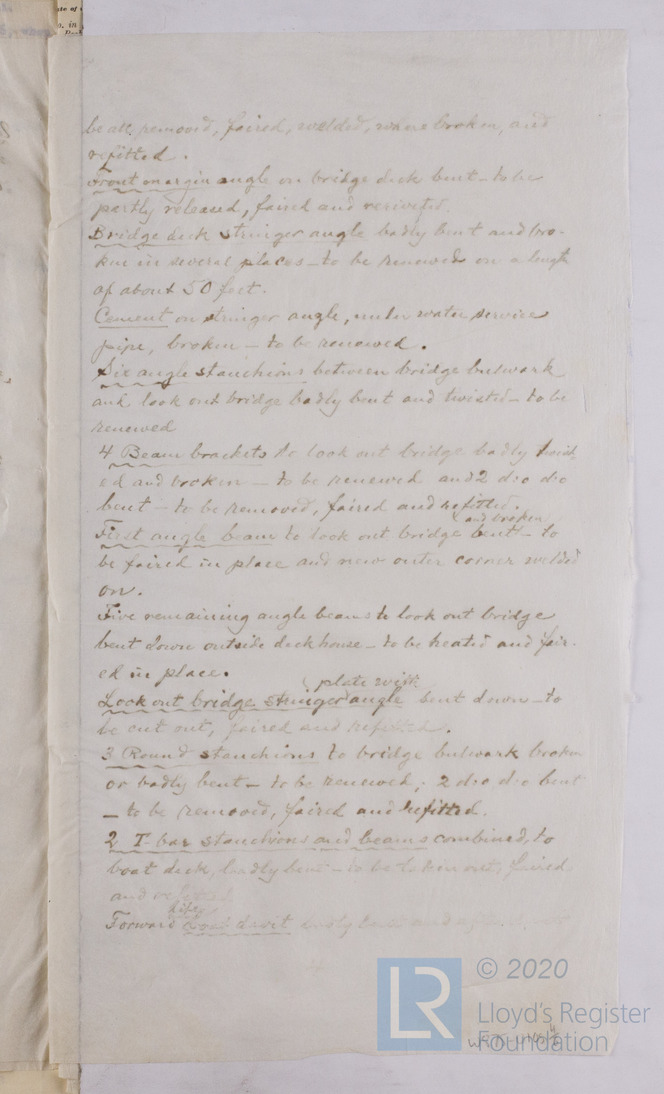 be all removed, faired, welded, where broken, and
refitted.
Front margin angle on bridge deck bent - to be
partly released, faired and reriveted.
Bridge deck stringer angle badly bent and bro-
ken in several places - to be renewed on a length
of about 50 feet.
Cement on stringer angle, under water service
pipe, broken - to be renewed.
Six angle stanchions between bridge bulwark
and look out bridge badly bent and twisted - to be
renewed
4 Beam brackets to look out bridge badly twist
ed and broken - to be renewed and 2 do do
bent - to be removed, faired and refitted.
and broken
First angle beam to look out bridge bent - to
be faired in place and new outer corner welded
on.
Five remaining angle beams to look out bridge
bent down outside deckhouse - to be heated and fair-
ed in place.
plate with
Look out bridge stringer angle bent down - to
be cut out, faired and refitted.
3 Round stanchions to bridge bulwark broken
or badly bent - to be renewed; 2 do do bent
- to be removed, faired and refitted.
2 T-bar stanchions and beams combined, to
boat deck, badly bent - to be taken out, faired
and refitted.
life
Forward boat davit badly bent and
LR
© 2020
Lloyd's Register
Foundation